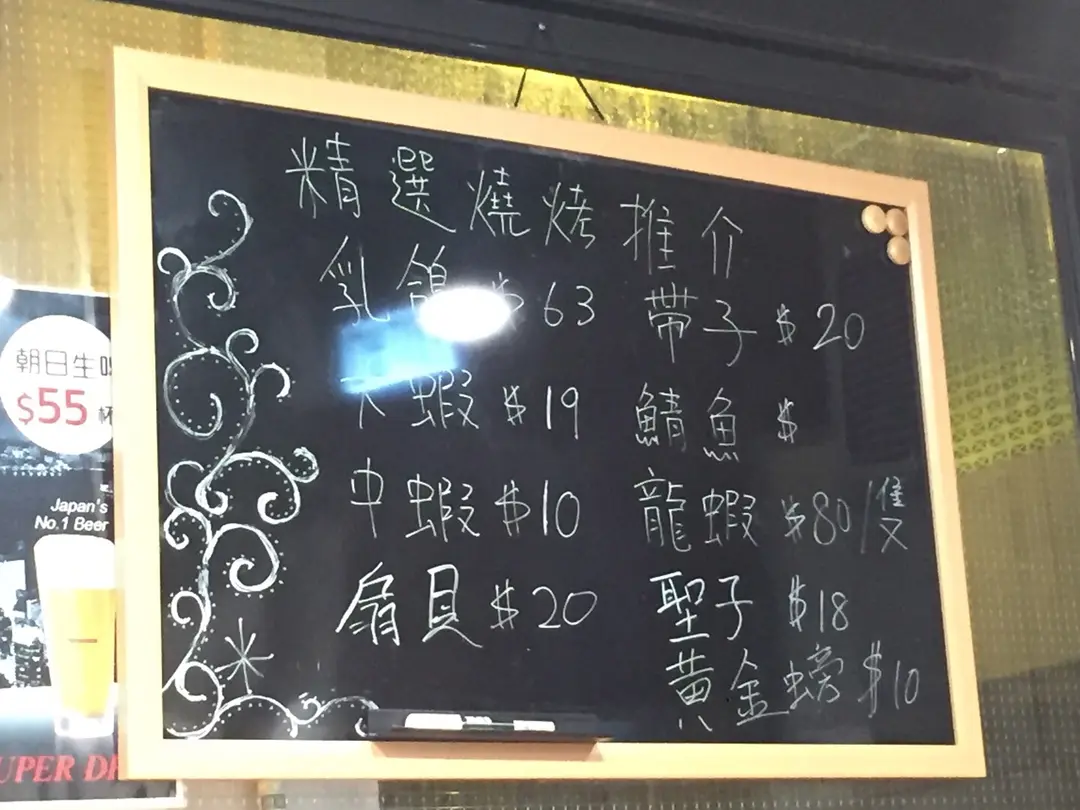 精選燒烤推介
乳鴿 $63
大蝦 $19
中蝦 $10
扇貝 $20
帶子 $20
鯖魚 $
龍蝦 $80/隻
聖子 $18
黃金螃 $10
朝日生
$55 杯
Japan's
No.1 Beer